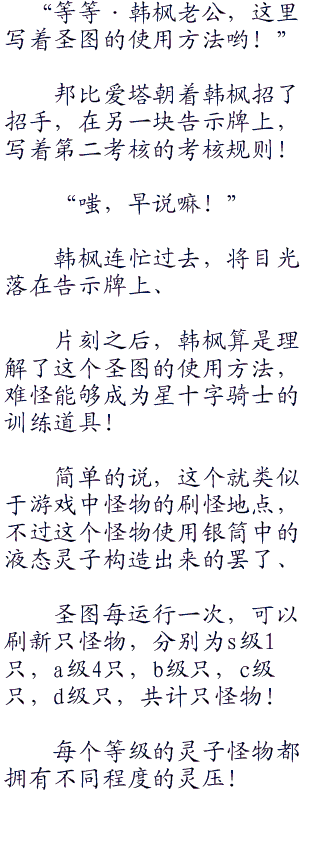 “等等·韩枫老公，这里
写着圣图的使用方法哟！”
邦比爱塔朝着韩枫招了
招手，在另一块告示牌上，
写着第二考核的考核规则！
“嗤，早说嘛！”
韩枫连忙过去，将目光
落在告示牌上、
片刻之后，韩枫算是理
解了这个圣图的使用方法，
难怪能够成为星十字骑士的
训练道具！
简单的说，这个就类似
于游戏中怪物的刷怪地点，
不过这个怪物使用银筒中的
液态灵子构造出来的罢了、
圣图每运行一次，可以
刷新只怪物，分别为s级1
只，a级4只，b级只，c级
只，d级只，共计只怪物！
每个等级的灵子怪物都
拥有不同程度的灵压！